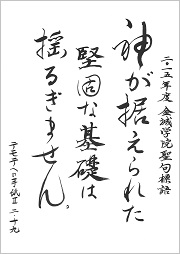 二〇一五年度 金城学院聖句標語
神が据えられた
堅固な基礎は
揺るぎません。
テモテへの手紙Ⅱ 二・十九